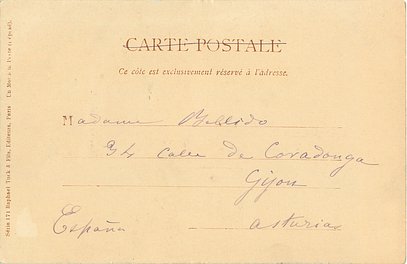 CARTE POSTALE
Ce côté est exclusivement réservé à l'adresse.
Madame Bellido
34 calle de Covadonga
Gijon
España asturias
Série 171 Raphael Tuck & Fils, Editeurs, Paris